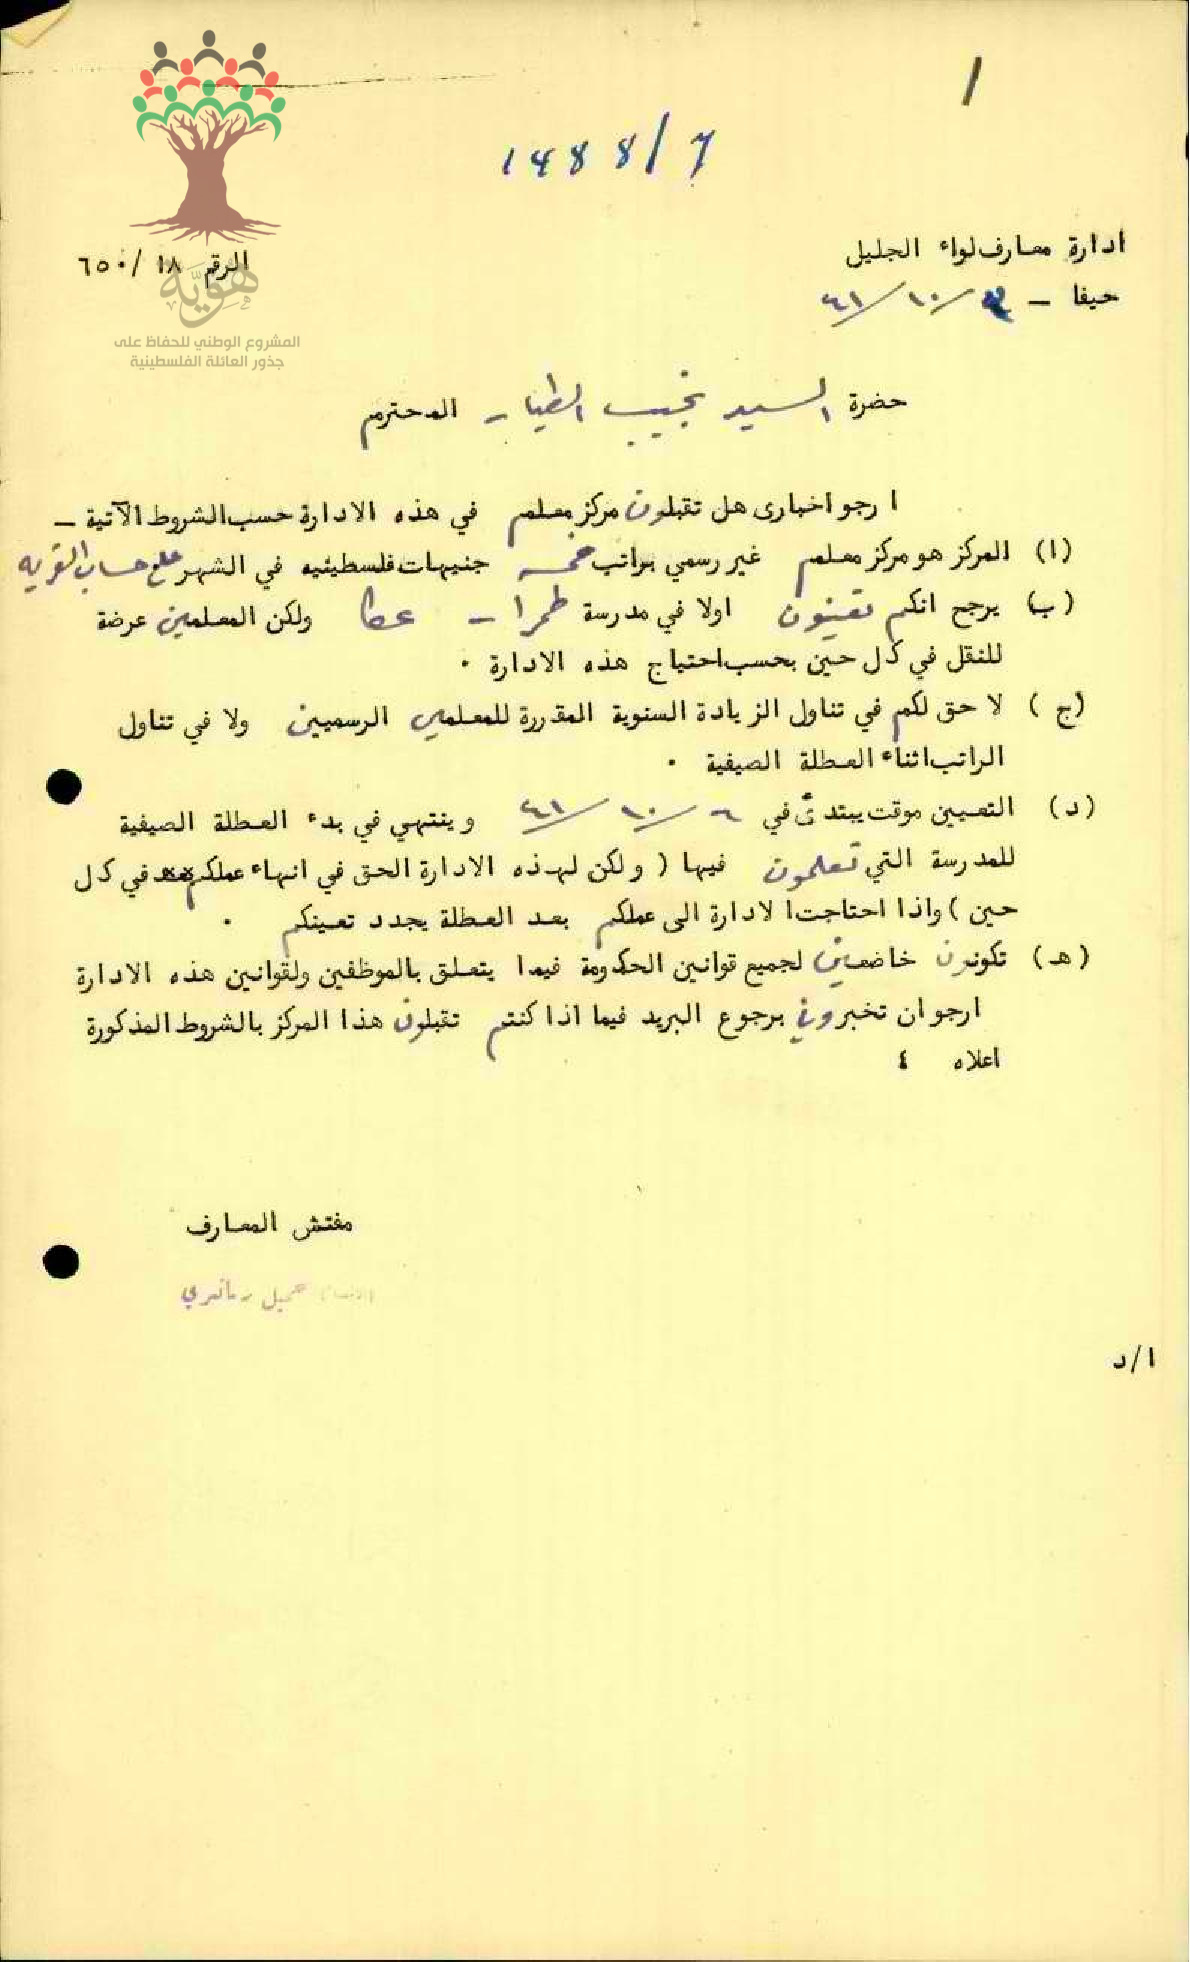 ١
١٤٨٨/٦
هوية
المشروع الوطني للحفاظ على
جذور العائلة الفلسطينية
ادارة معارف لواء الجليل
الرقم ١٨ /٦٥٠
حيفا – /١٠/٤١
حضرة السيد نجيب الطيار – المحترم
ارجو اخباري هل تقبلون مركز معلم في هذه الادارة حسب الشروط الآتية –
(ا) المركز هو مركز معلم غير رسمي براتب خمسة جنيهات فلسطينيه في الشهر على حساب القريه
(ب) يرجح انكم تعينون اولا في مدرسة طمرا – عكا ولكن المعلمين عرضة
للنقل في كل حين بحسب احتياج هذه الادارة ٠
(ج) لا حق لكم في تناول الزيادة السنوية المقررة للمعلمين الرسميين ولا في تناول
الراتب اثناء العطلة الصيفية ٠
(د) التعيين موقت يبتدئ في ٦/١٠/٤١ وينتهي في بدء العطلة الصيفية
للمدرسة التي تعلمون فيها ( ولكن لهذه الادارة الحق في انهاء عملكم في كل
حين ) واذا احتاجت الادارة الى عملكم بعد العطلة يجدد تعيينكم ٠
(هـ) تكونون خاضعين لجميع قوانين الحكومة فيما يتعلق بالموظفين ولقوانين هذه الادارة
ارجو ان تخبروني برجوع البريد فيما اذا كنتم تقبلون هذا المركز بالشروط المذكورة
اعلاه ٤
مفتش المعارف
جميل
ا/د